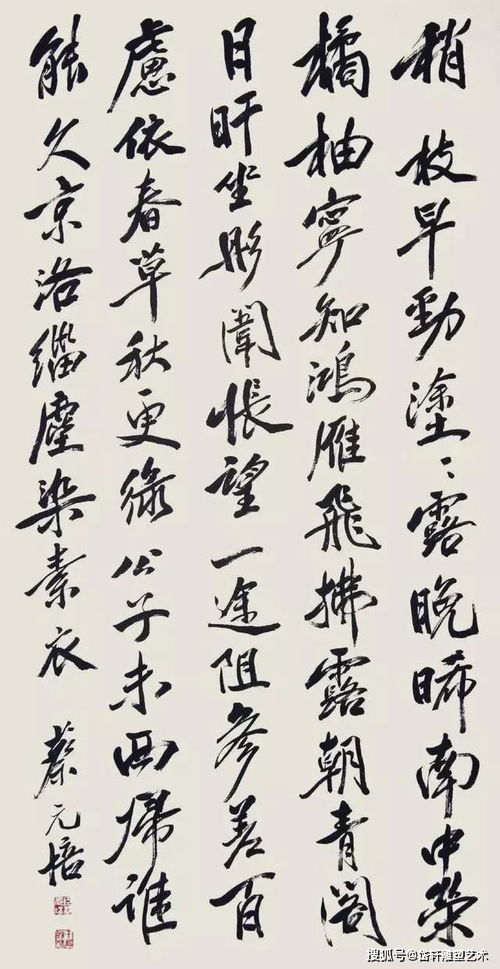 梢枝早勁塗〻露晚晞南中榮
橘柚寧知鴻雁飛拂露朝青閣
日旰坐彤闈悵望一途阻參差百
慮依春草秋更綠公子未西歸誰
能久京洛緇塵染素衣
蔡元培
搜狐号@岱轩雕塑艺术